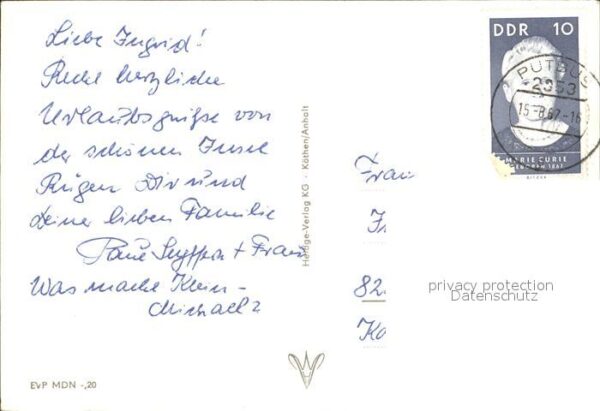 Liebe Ingrid!
Recht herzliche
Urlaubsgrüße von
der schönen Insel
Rügen Dir und
Deiner lieben Familie
Paul + Frau
Was macht Klein-
Michael?
EVP MDN -,20
Heldge-Verlag KG · Köthen/Anhalt
DDR 10
MARIE CURIE
GEBOREN 1867
PUTBUS
2353
15.-8.67-16
Frau
82
privacy protection
Datenschutz